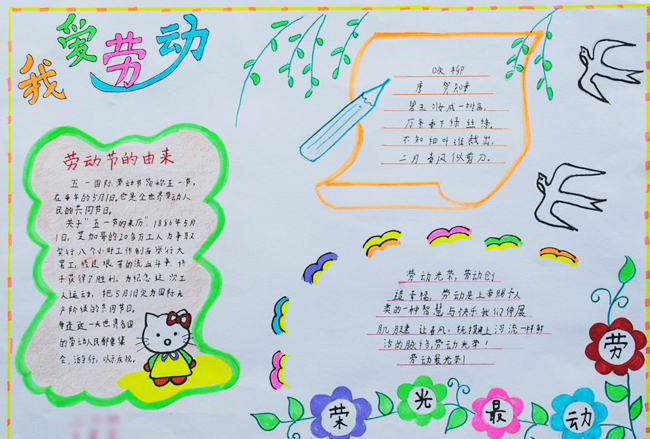 我爱劳动
劳动节的由来
五一国际劳动节简称五一节,
在每年的5月1日,它是全世界劳动人
民的共同节日。
关于"五一节的来历"1886年5月
1日,芝加哥的20多万工人为争取
实行八个小时工作制而举行大
罢工,经过艰苦的流血斗争,终
于获得了胜利。为纪念这次工
人运动,把5月1日定为国际无
产阶级的共同节日。
每逢这一天世界各国
的劳动人民都要集
会、游行,以示庆祝。
咏柳
唐 贺知章
碧玉妆成一树高,
万条垂下绿丝绦。
不知细叶谁裁出,
二月春风似剪刀。
劳动光荣,劳动创
造幸福,劳动是上帝赐予人
类的一种智慧与快乐我们伸展
肌肤
让春风
抚摸
上河流一样鲜
活的脉
劳动光荣!
劳动最光荣!
劳
动
最
光
荣